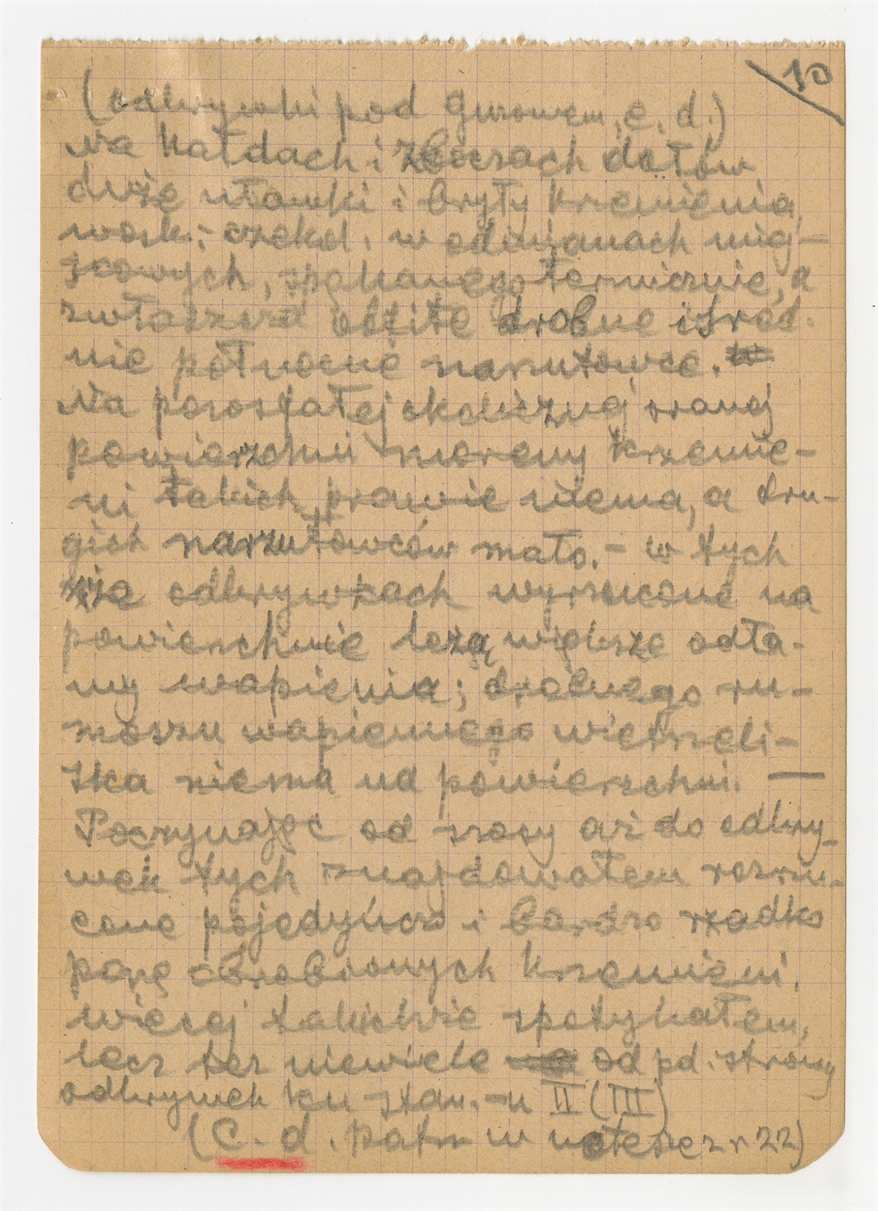 10
(odkrywki pod Gurowem, c. d.)
Na hałdach i zboczach dołów
duże ułamki i bryły krzemienia
wosk. i czekol. w odmianach miej-
scowych, spękanego termicznie, a
zwłaszcza obfite drobne i śred-
nie północne narzutowce.
Na pozostałej okolicznej oranej
powierzchni moreny krzemie-
ni takich prawie niema, a dru-
gich narzutowców mało. - W tych
że odkrywkach wyrzucone na
powierzchnię leżą większe odła-
my wapienia; drobnego ru-
moszu wapiennego wietrzeli-
ska niema na powierzchni. —
Poczynając od szosy aż do odkry-
wek tych znajdowałem rozrzu-
cone pojedyńczo i bardzo rzadko
parę obrobionych krzemieni.
Więcej takichże spotykałem,
lecz też niewiele od pd. strony
odkrywek ku stan.-u II (III)
(C. d. patrz w notesce n 22)